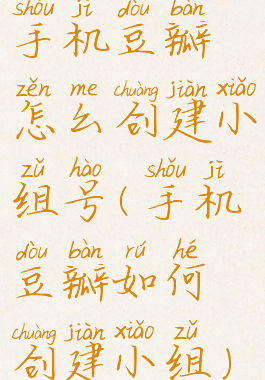 shǒu jī dòu bàn
手机豆瓣
zěn me chuàng jiàn xiǎo
怎么创建小
zǔ hào shǒu jī
组号(手机
dòu bàn rú hé
豆瓣如何
chuàng jiàn xiǎo zǔ
创建小组)